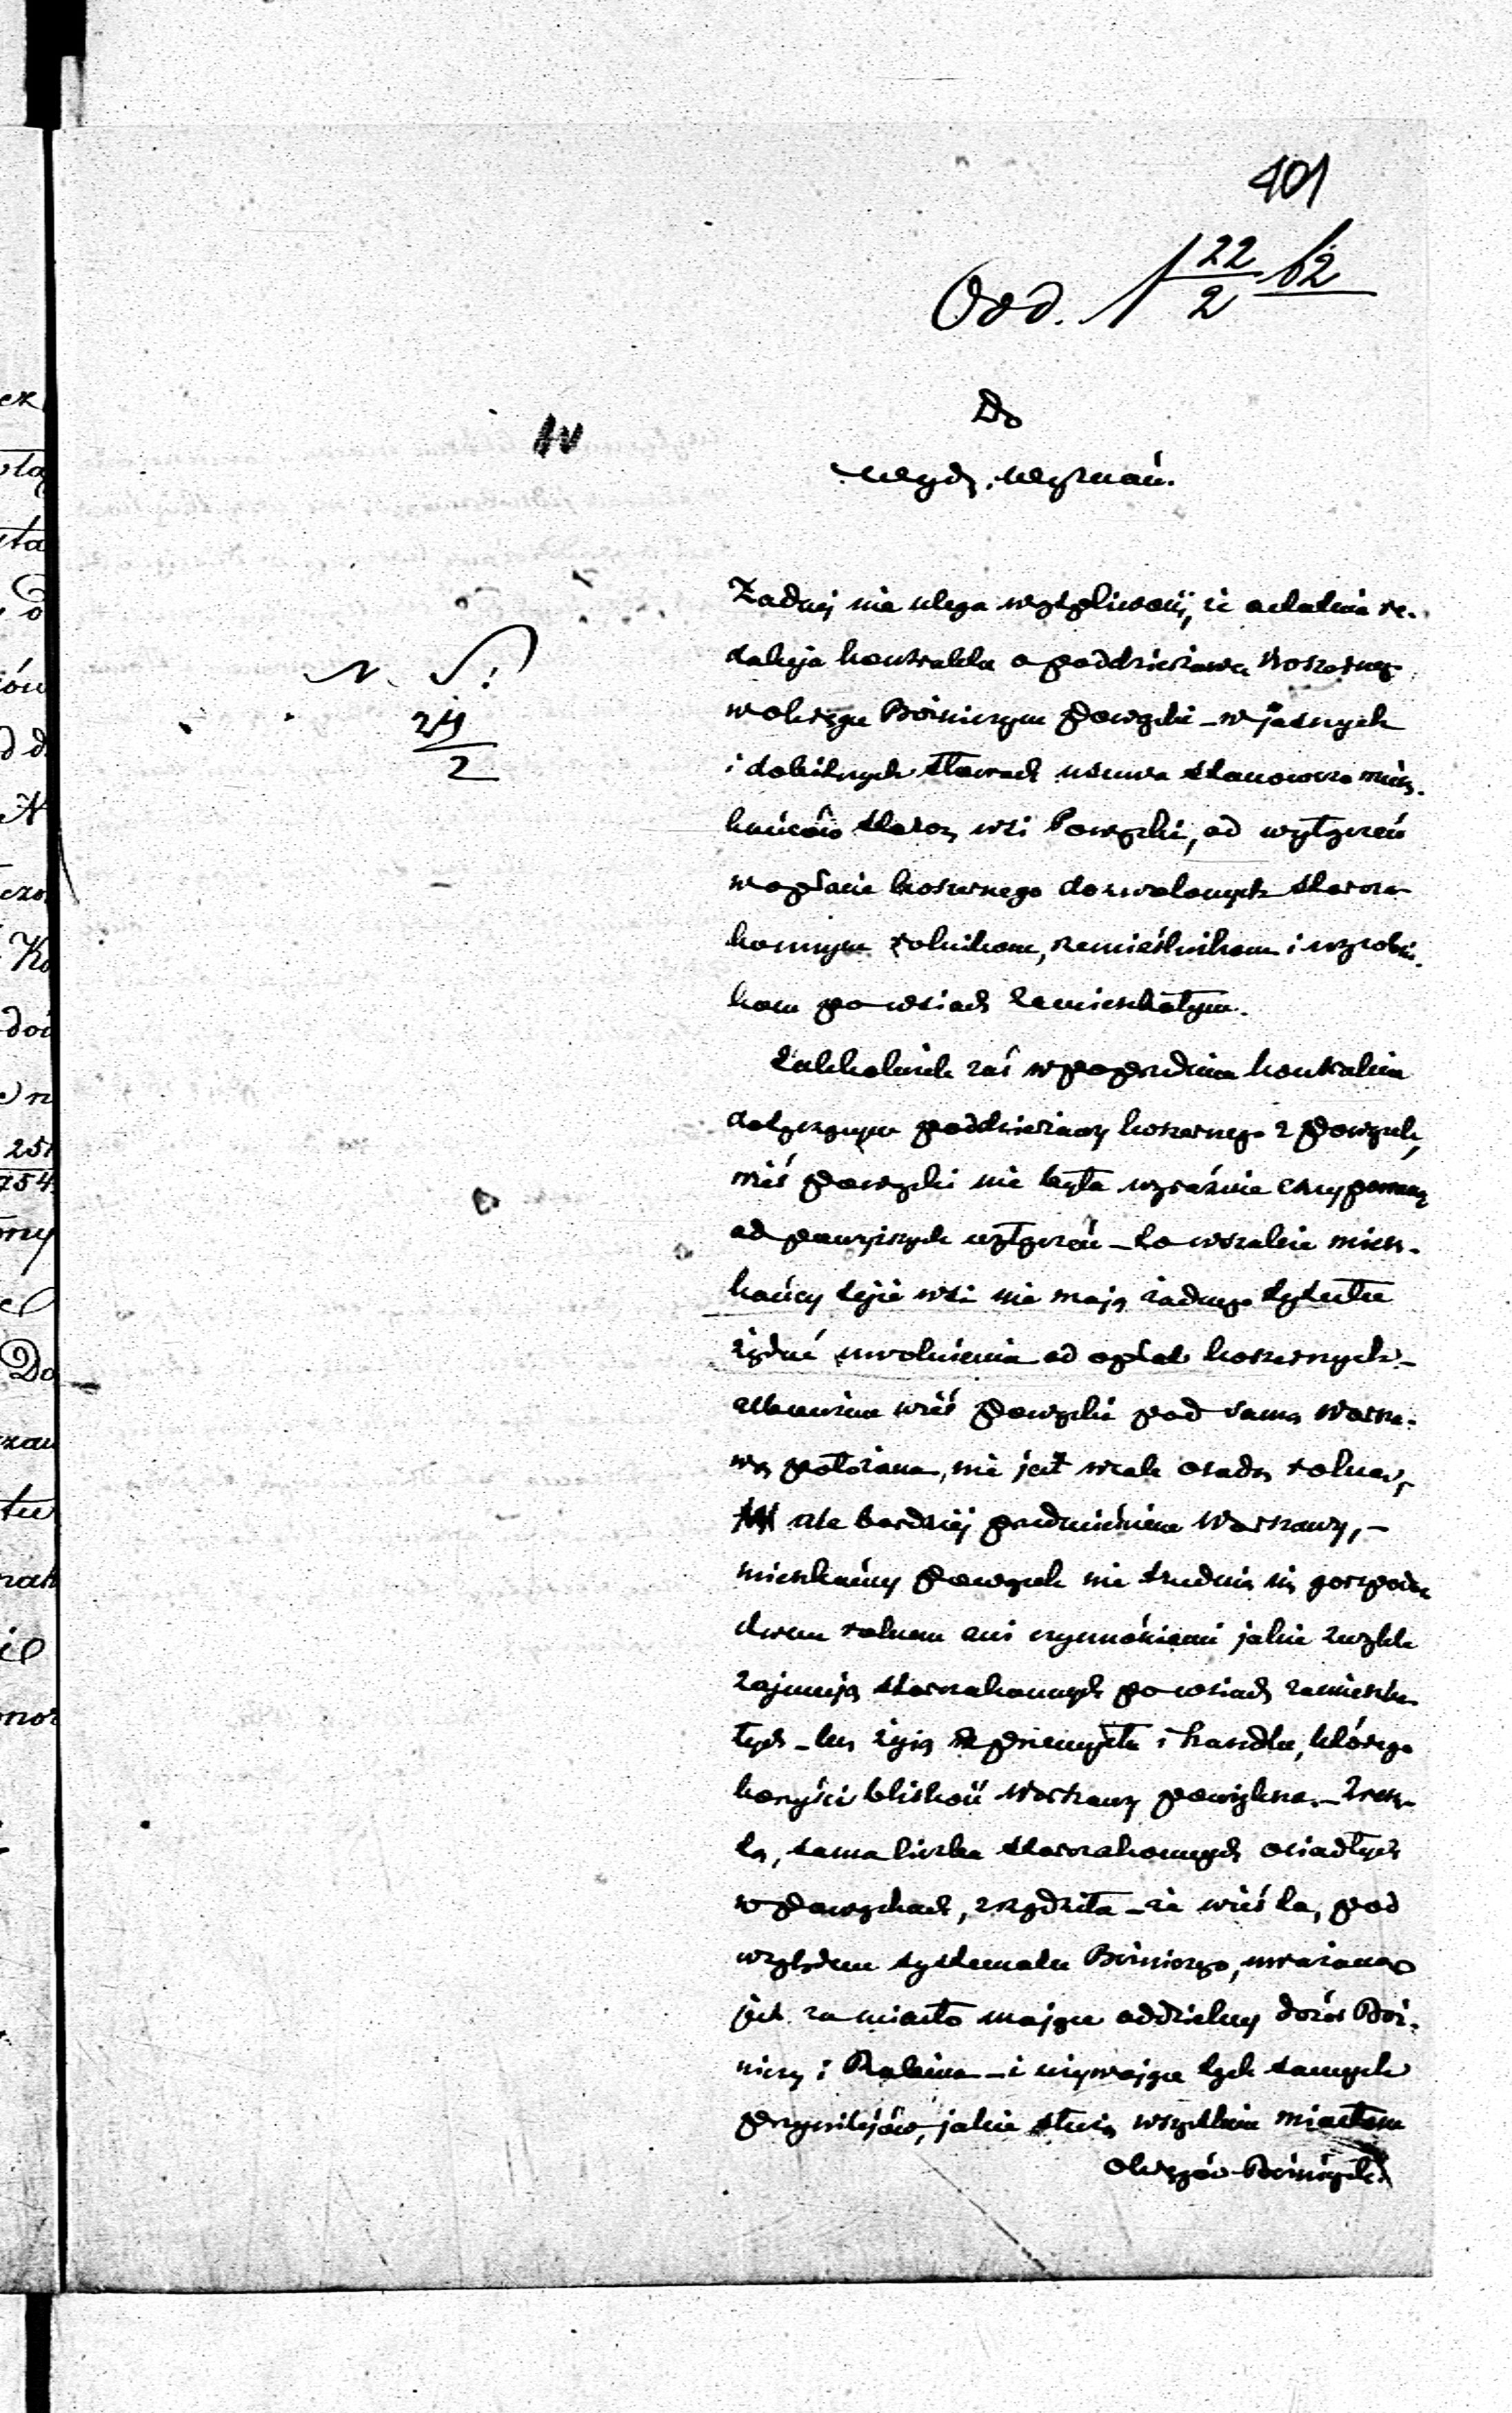 401
Odd. 22/2 62
Do
Wydz. Wyznań.
N. S.
24/2
Żadnej nie ulega wątpliwości, iż ostatnia re-
dakcja kontraktu o poddzierżawę koszerneg
w okręgu Bożniczym Powązki – w jasnych
i dobitnych słowach usuwa stanowczo miesz-
kańców staroz. wsi Powązki, od wyłączeń
w opłacie koszernego dozwolonych staroza-
konnym rolnikom, rzemieślnikom i wyrobni-
kom po wsiach zamieszkałym.
Jakkolwiek zaś w poprzednim kontrakcie
dotyczącym poddzierżawy koszernego z Powązek,
wieś Powązki nie była wyraźnie
od powyższych wyłączeń – to wszakże miesz-
kańcy tejże wsi nie mają żadnego tytułu
żądać uwolnienia od opłat koszernych –
albowiem wieś Powązki pod samą Warsza-
wą położona, nie jest wcale osadą rolną,
ale bardziej przedmieściem Warszawy, –
mieszkańcy Powązek nie trudnią się gospodar
stwem rolnem ani czynnościami jakie zwykle
zajmują starozakonnych po wsiach zamieszka-
łych – lecz żyją z przemysłu i handlu, którego
korzyści bliskość Warszawy powiększa. – Zresz-
tą, sama liczba starozakonnych osiadłych
w Powązkach, zrządziła – że wieś ta, pod
względem systematu Bożniczego, uważana
jest za miasto mające oddzielny dozór Boż-
niczy i Rabina – i używające tych samych
przywilejów, jakie służą wszystkim miastom
okręgów Bożniczych
ex
sta
sta
ów
d d
N
czo
Ko
doi
251
754
ny
Do
zau
tu
rak
nor